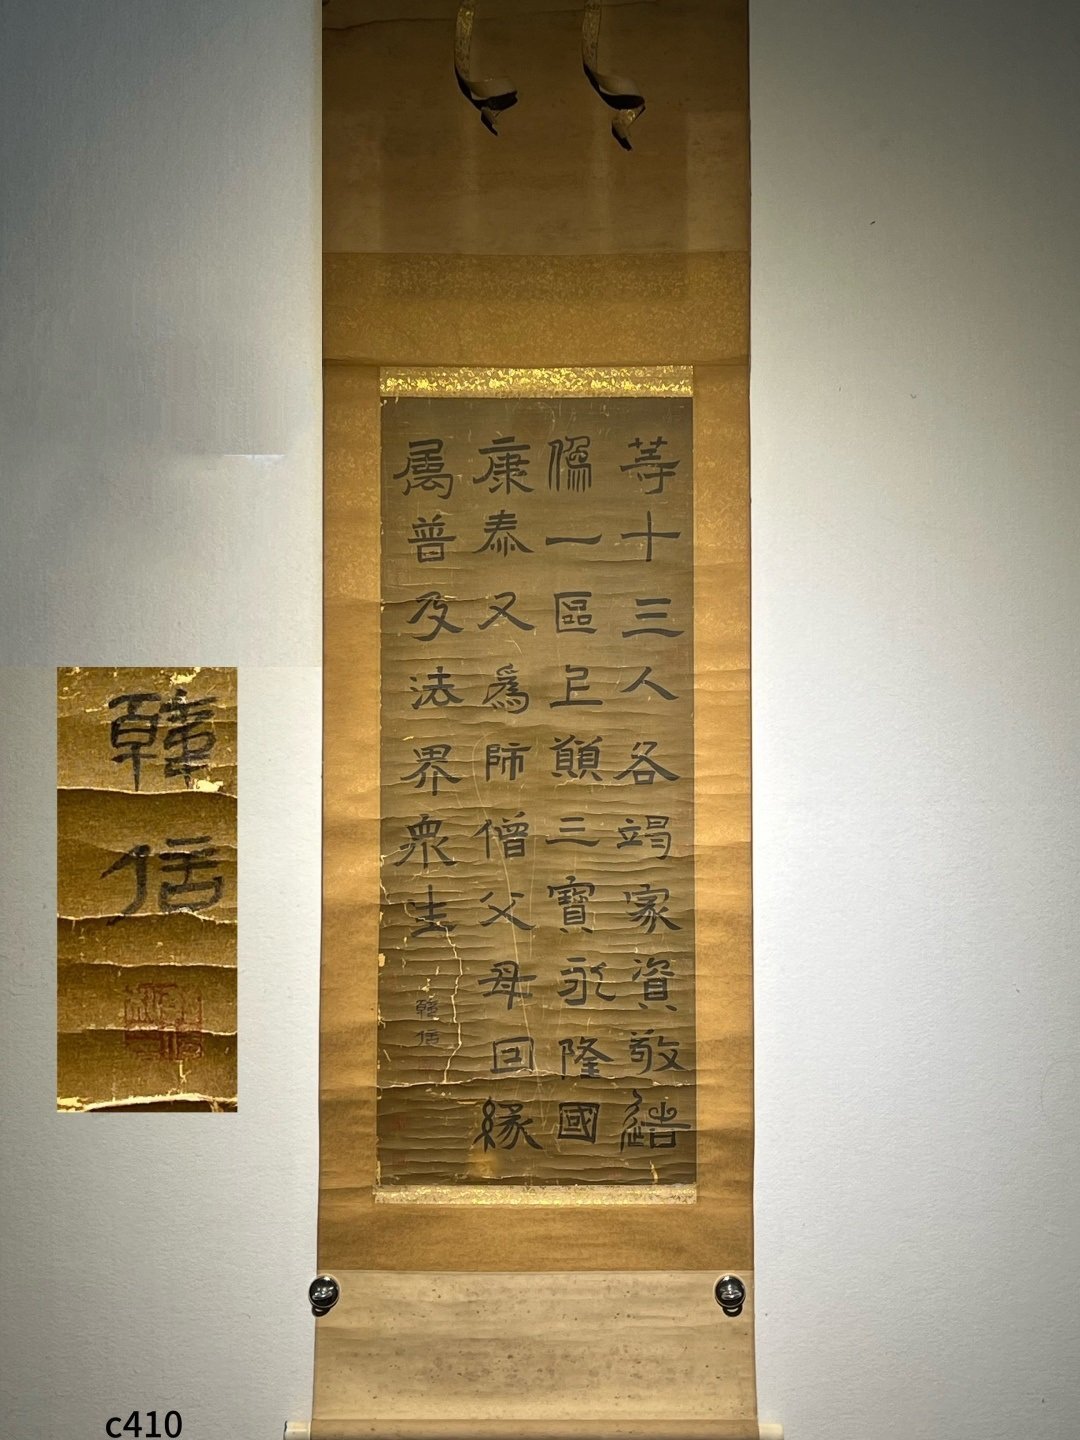 等十三人各竭家資敬造
像一區上願三寶永隆國
康泰又為師僧父母回緣
属普及法界衆生
韓信
韓信
c410